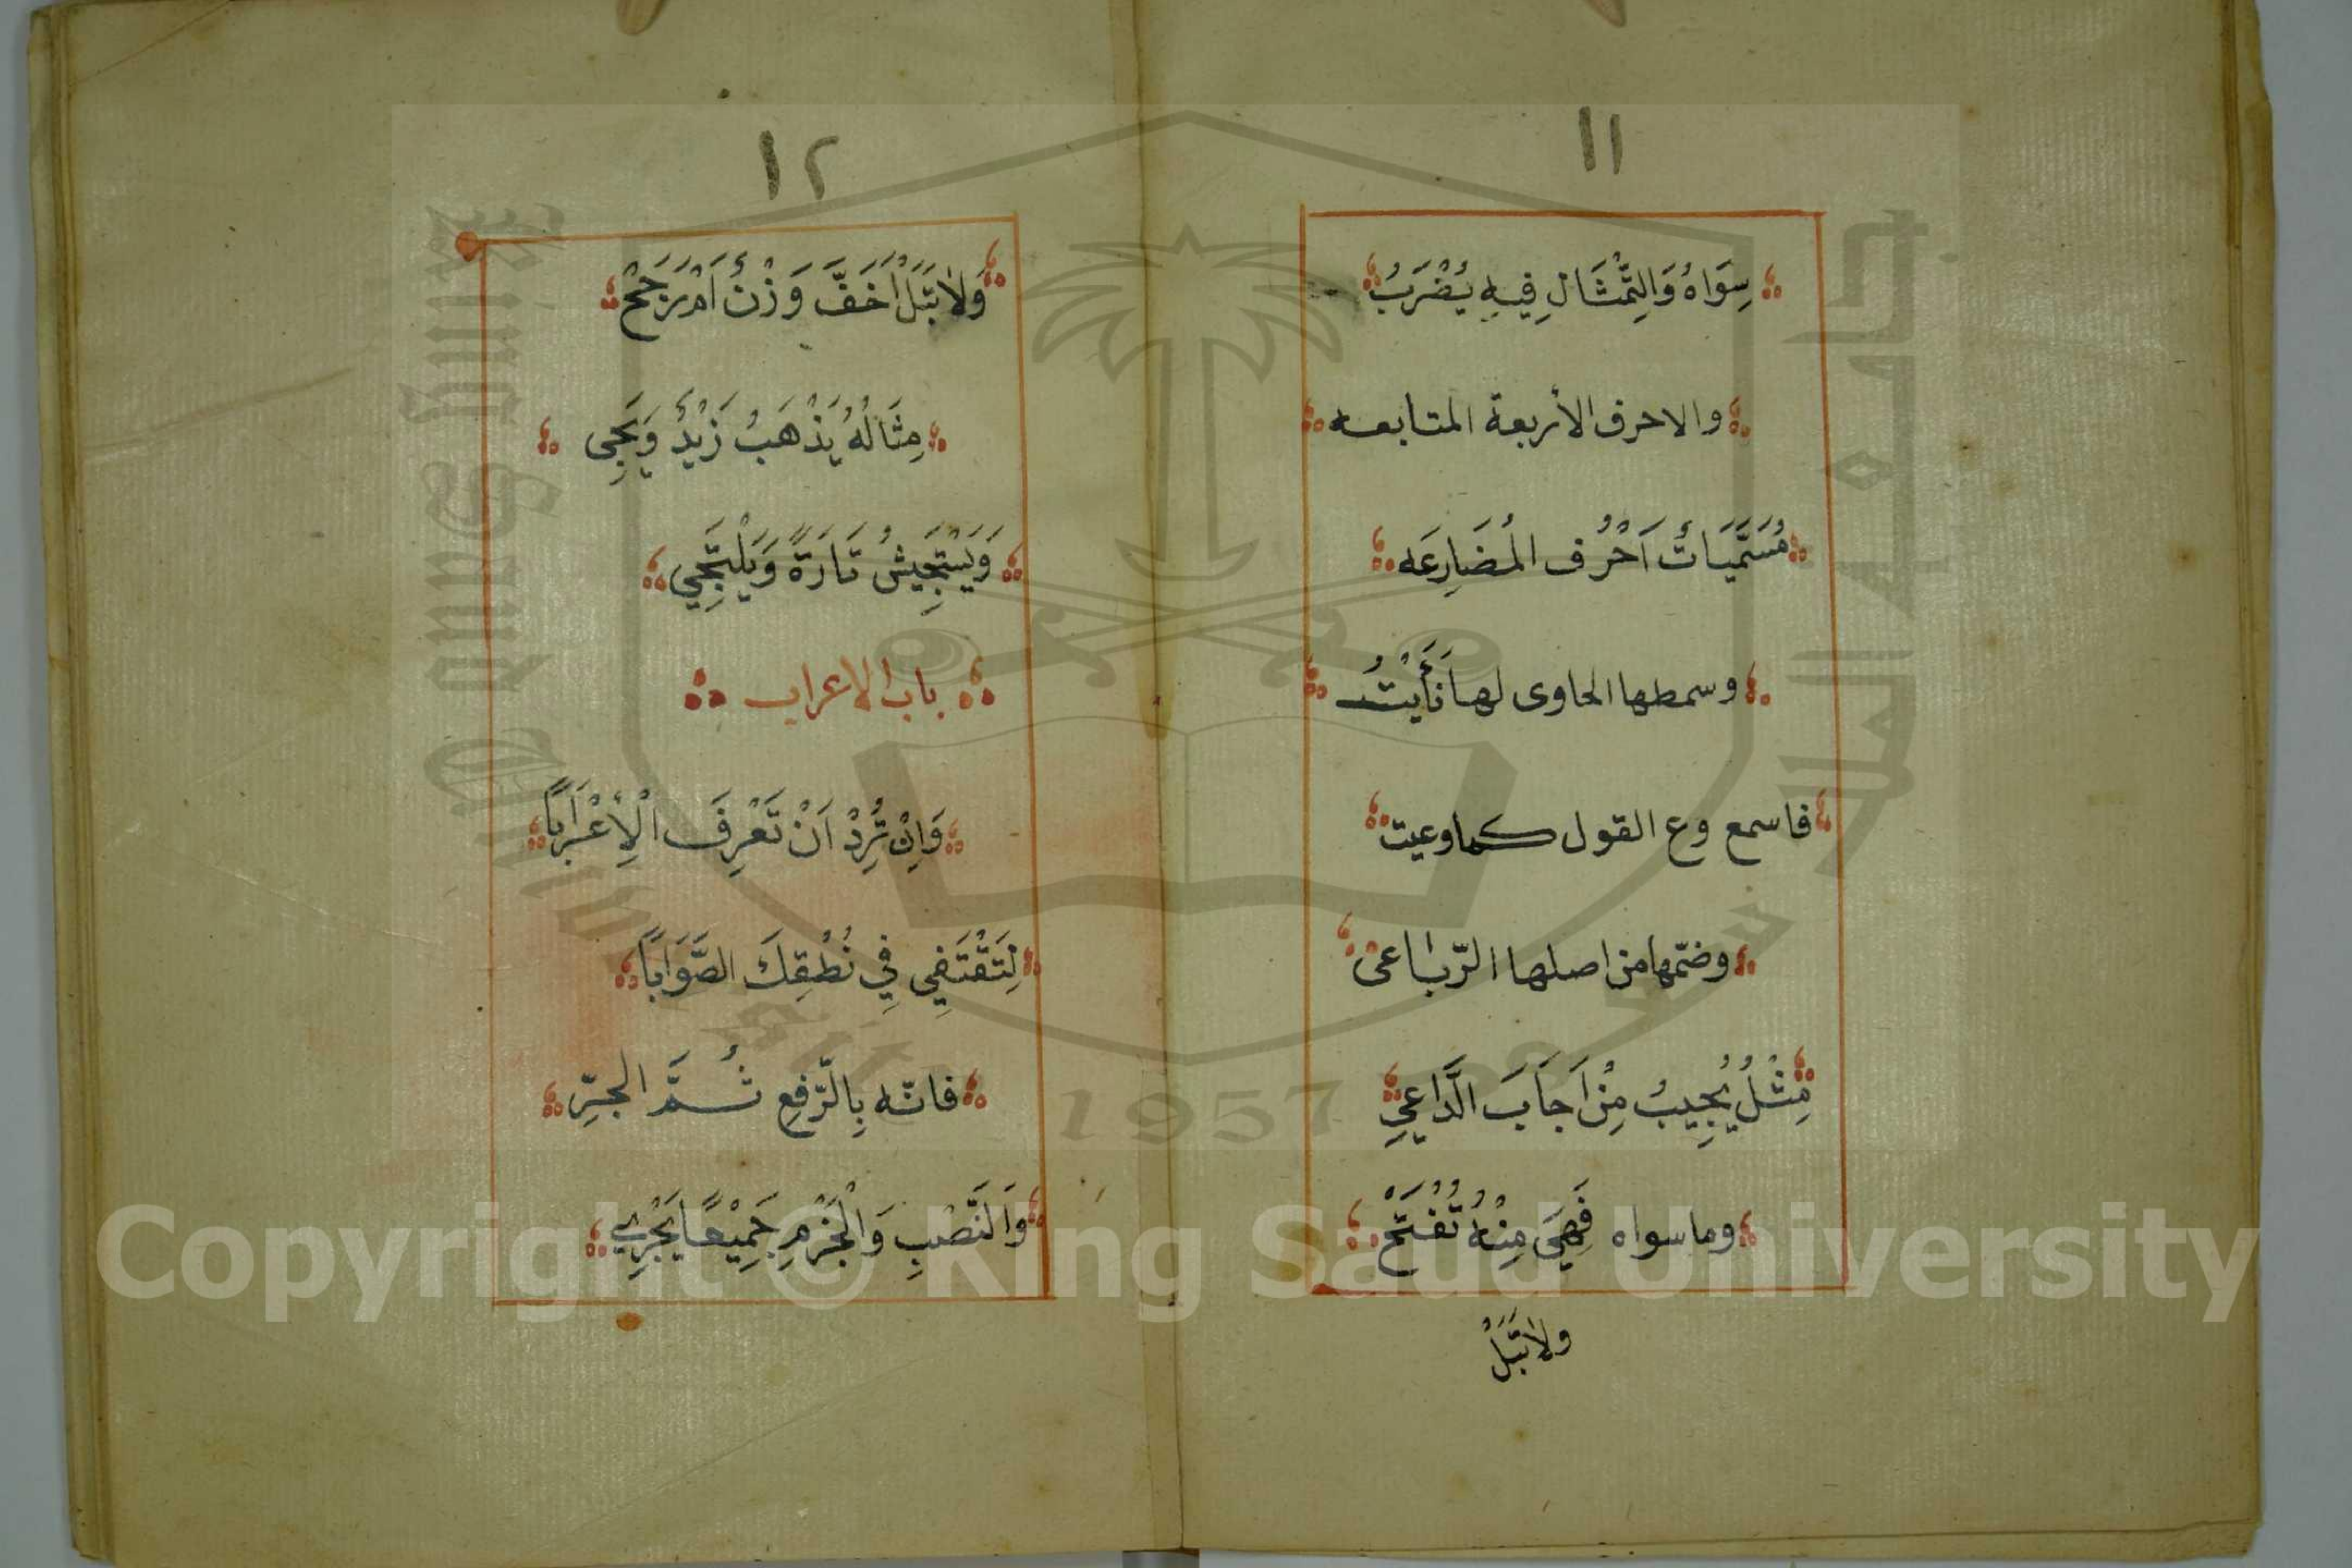 ١١
سِوَاهُ وَالتِّمْثَالُ فِيهِ يُضْرَبُ
والاحرف الأربعة المتابعه
مُسَمَّيَاتٌ اَحْرُف المُضَارِعَه
وسمطها الحاوى لها نَأَيْتُ
فاسمع وع القول كما وعيت
وضمّها من اصلها الرّباعى
مِثْلُ يُجِيبُ مِنْ اَجَابَ الدَّاعِي
وما سواه فَهِيَ مِنْهُ تُفْتَحْ
ولَا تُبَلْ
١٢
وَلَا تُبَلْ أَخَفَّ وَزْنٌ اَمْ رَجَحْ
مِثَالُهُ يَذْهَبُ زَيْدٌ وَيَجِى
وَيَسْتَجِيشُ تَارَةً وَيَلْتَجِي
باب الاعراب
وَاِنْ تُرِدْ اَنْ تَعْرِفَ الْاِعْرَابَا
لِتَقْتَفِي فِي نُطْقِكَ الصَّوَابَا
فانّه بِالرّفعِ ثُمَّ الجرِّ
وَالنَّصْبِ وَالْجَزْمِ جَمِيْعًا يَجْرِي
King Saud University
1957
Copyright © King Saud University